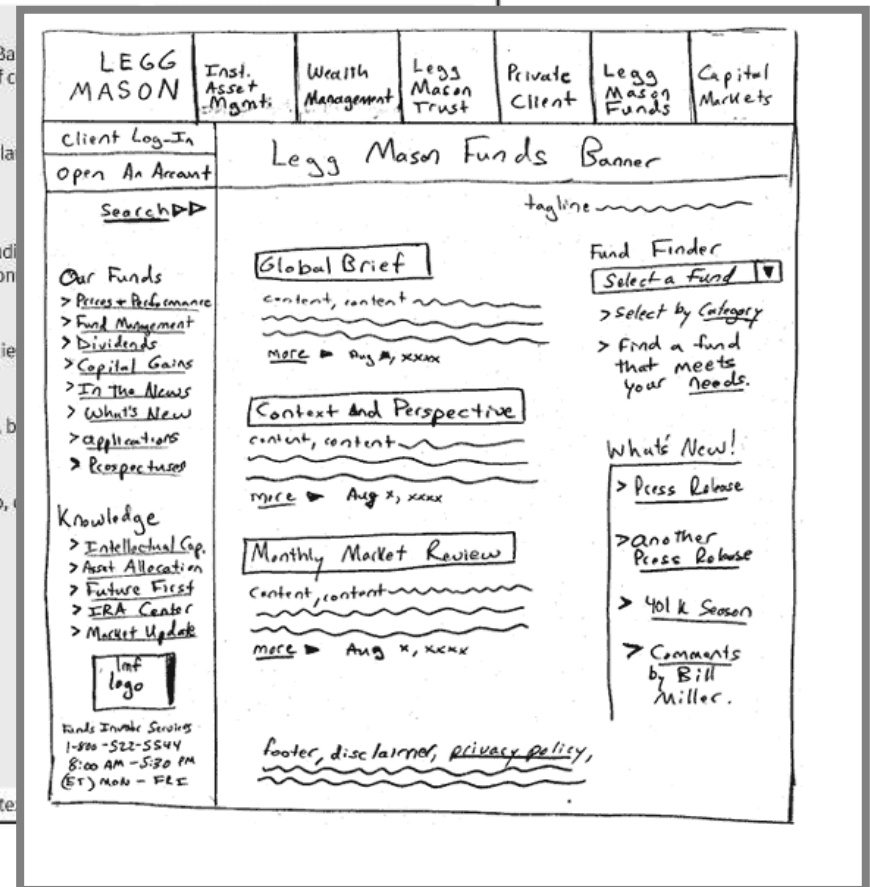 LEGG
MASON
Inst.
Asset
Mgmt.
Wealth
Management
Legg
Mason
Trust
Private
Client
Legg
Mason
Funds
Capital
Markets
Client Log-In
Open An Account
Search
Our Funds
> Prices + Performance
> Fund Management
> Dividends
> Capital Gains
> In The News
> What's New
> applications
> Prospectuses
Knowledge
> Intellectual Cap.
> Asset Allocation
> Future First
> IRA Center
> Market Update
lmf
logo
Funds Services
1-800-522-5544
8:00 AM - 5:30 PM
(ET) MON - FRI
Legg Mason Funds Banner
tagline
Global Brief
content, content
more ► Aug *, xxxx
Context And Perspective
content, content
more ► Aug x, xxxx
Monthly Market Review
content, content
more ► Aug x, xxxx
footer, disclaimer, privacy policy,
Fund Finder
Select a Fund ▼
> Select by Category
> Find a fund
that meets
your needs.
What's New!
> Press Release
> another
Press Release
> 401 k Season
> Comments
by Bill
Miller.